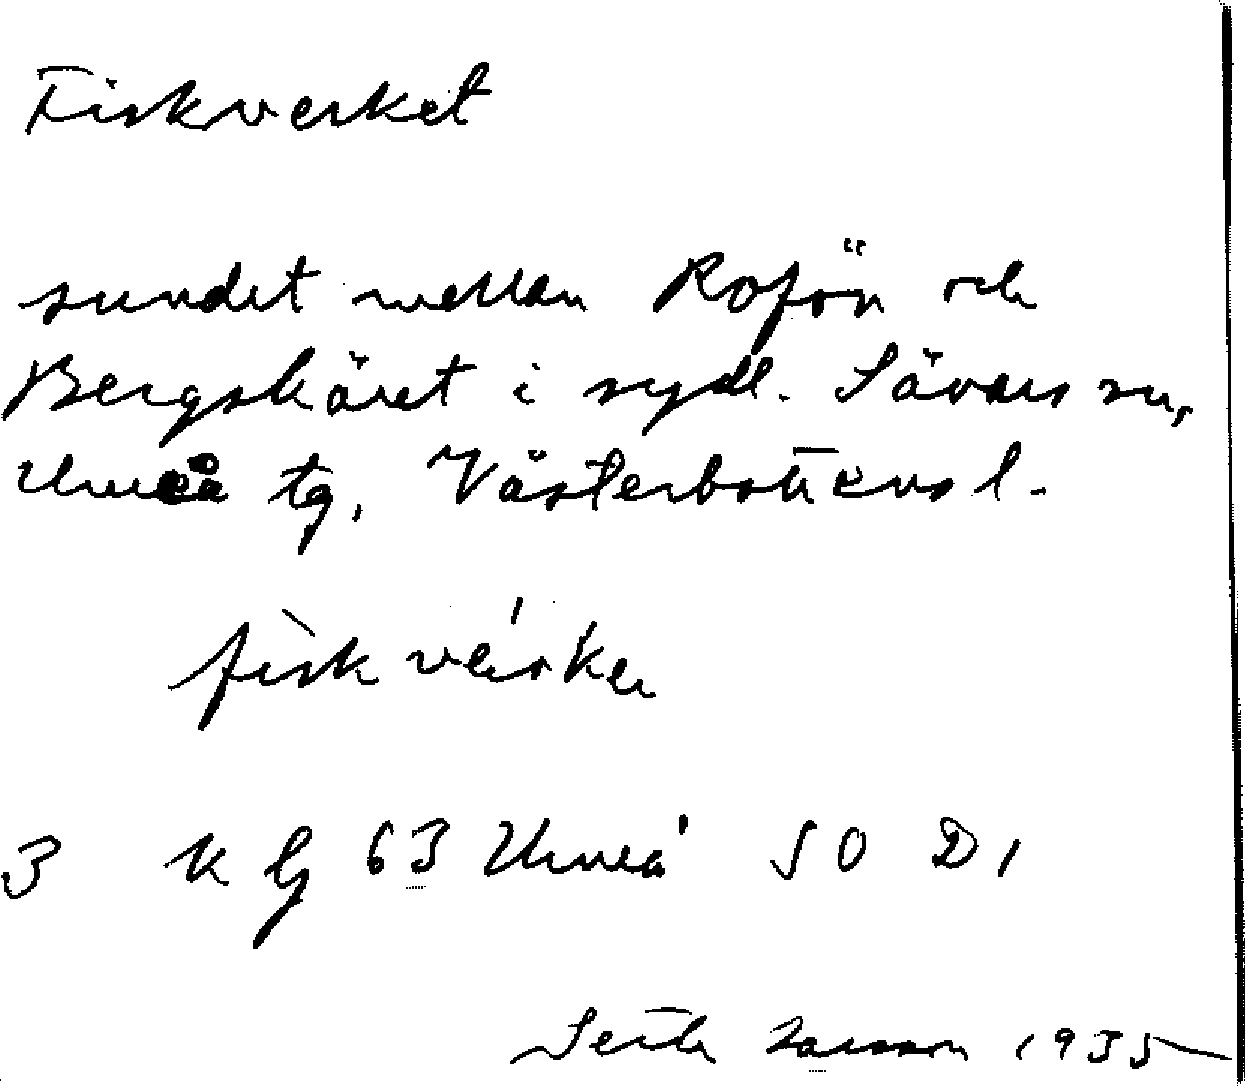 Fiskverket
sundet mellan Rofön och
Bergskäret i sydl. Sävars sn,
Umeå tg, Västerbottens l.
3 k bl 63 Umeå SO D1
Larsson 1935